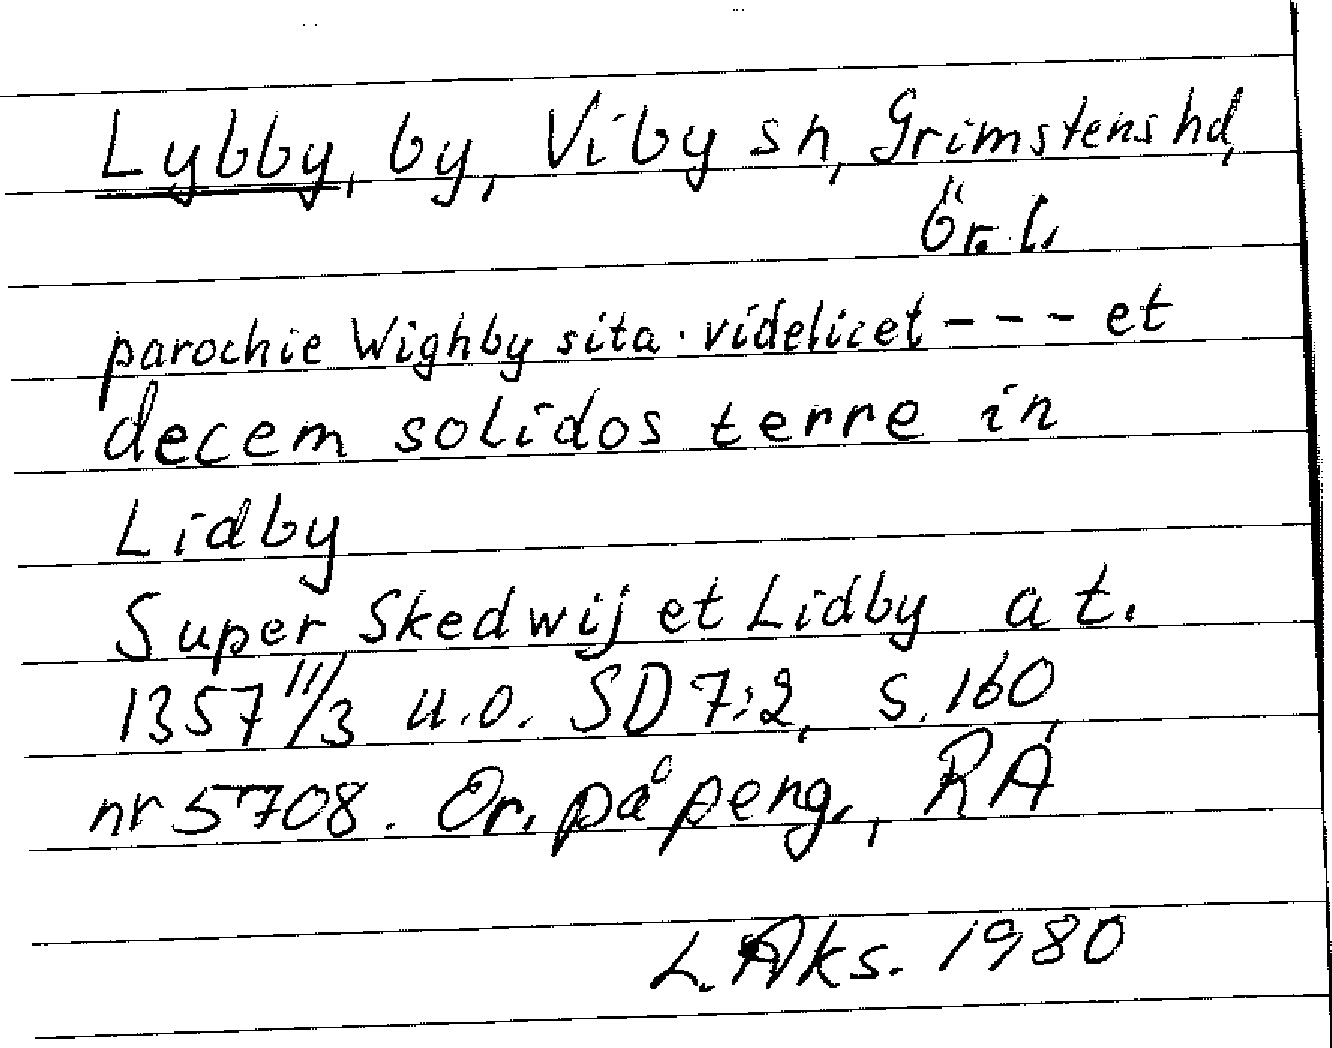 Lybby, by, Viby sn, Grimstens hd,
Ör. l.
parochie Wighby sita. videlicet - - - et
decem solidos terre in
Lidby
Super Skedwij et Lidby a t.
1357 11/3 u.o. SD 7:2, s. 160,
nr 5708. Or. på perg., RA
L. Aks. 1980